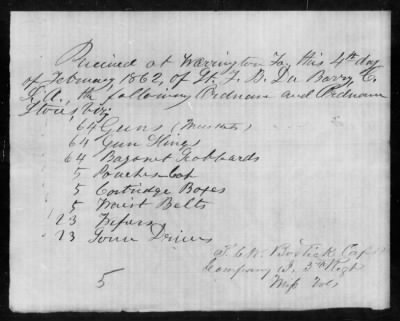 Received at Warrington Fa, this 4th day
of February 1862, of Lt. F. B. Du Barry, C.
S. A., the following Ordnance and Ordnance
Stores, viz,
64 Guns (Muskets)
64 Gun Slings
64 Bayonet Scabbards
5 Pouches Cap
5 Cartridge Boxes
5 Waist Belts
23 Wipers
23 Screw Drivers
T. C. K. Bostick Capt
Company I. 3rd Regt
Miss Vols
5